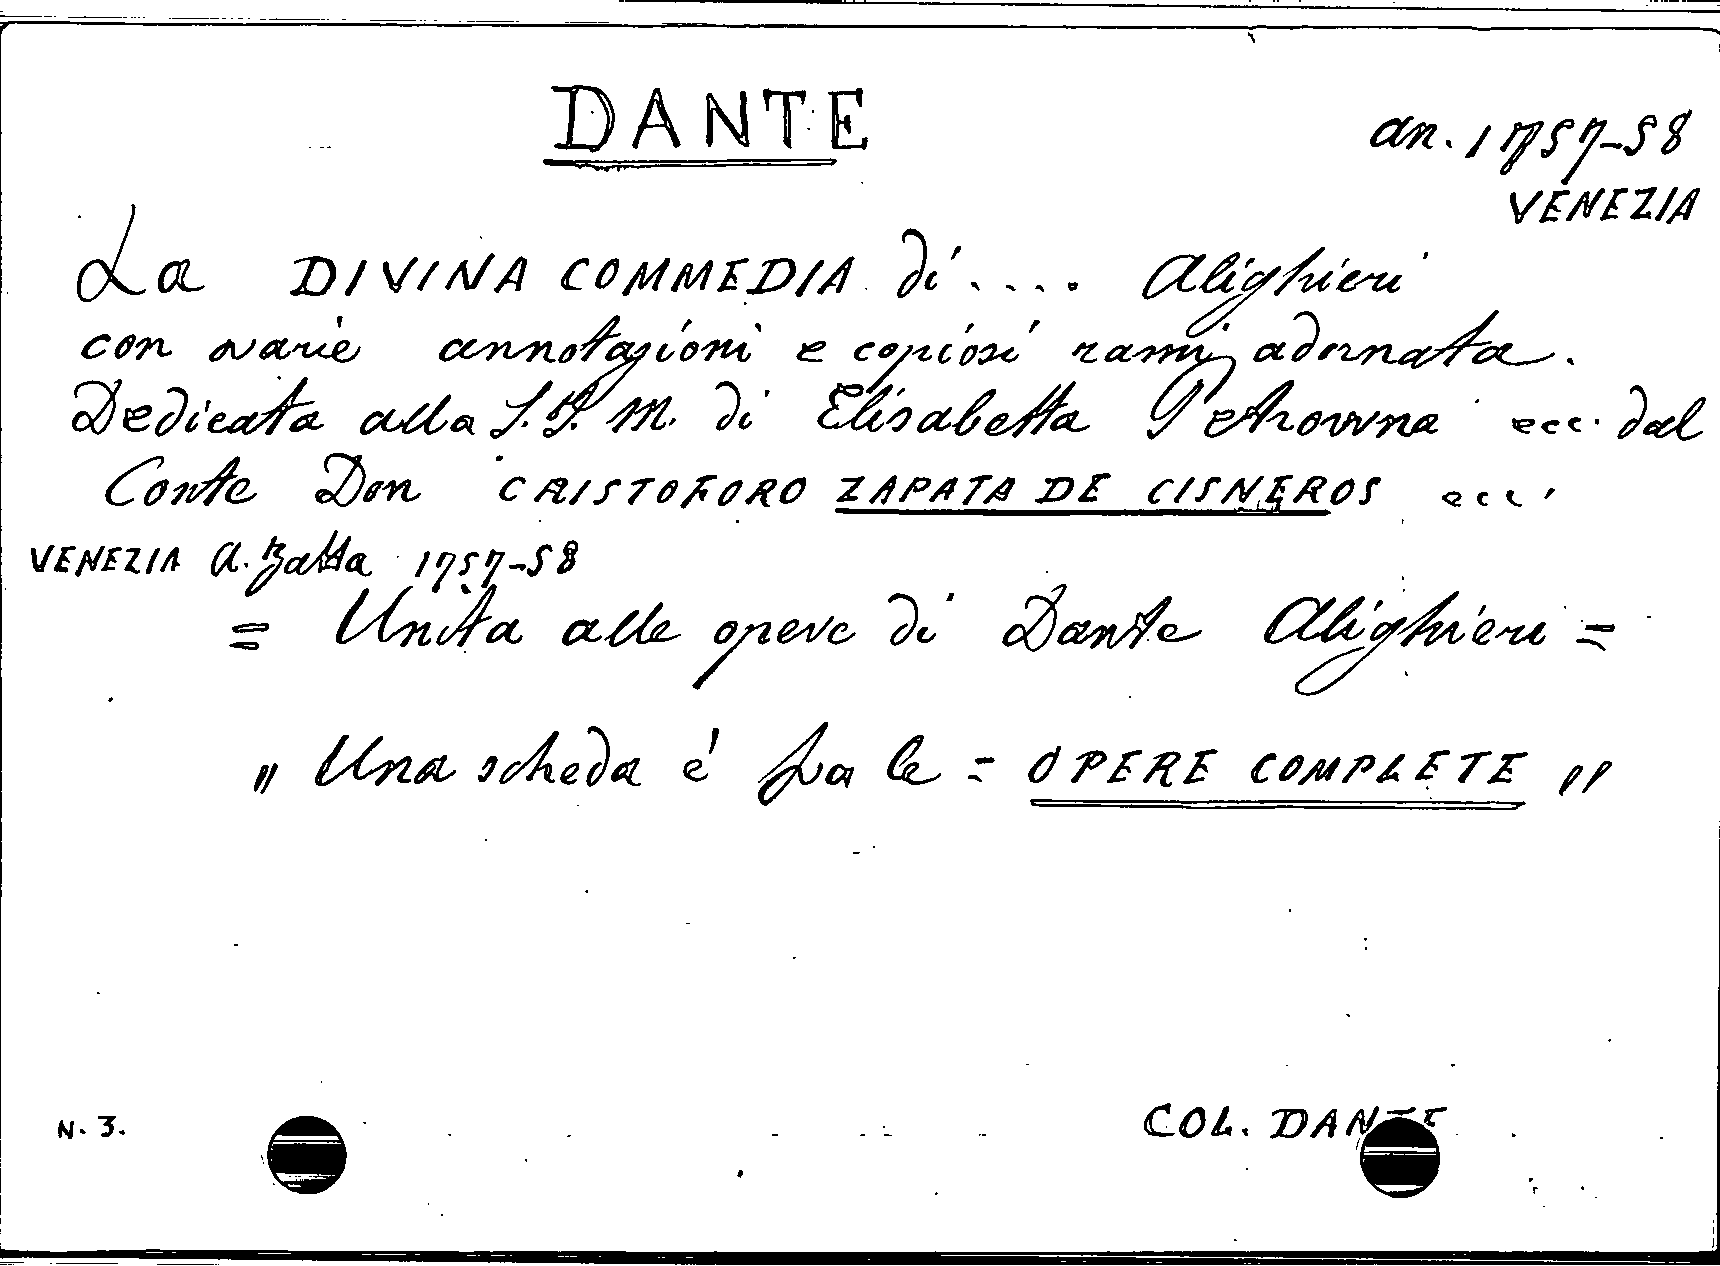 DANTE
an. 1757-58
VENEZIA
La DIVINA COMMEDIA di .... Alighieri
con varie annotazioni e copiosi rami adornata.
Dedicata alla S.I.M. di Elisabetta Petrowna ecc. dal
Conte Don CRISTOFORO ZAPATA DE CISNEROS ecc.
VENEZIA A. Zatta 1757-58
= Unita alle opere di Dante Alighieri =
„ Una scheda é fra le = OPERE COMPLETE „
N. 3.
COL. DANTE